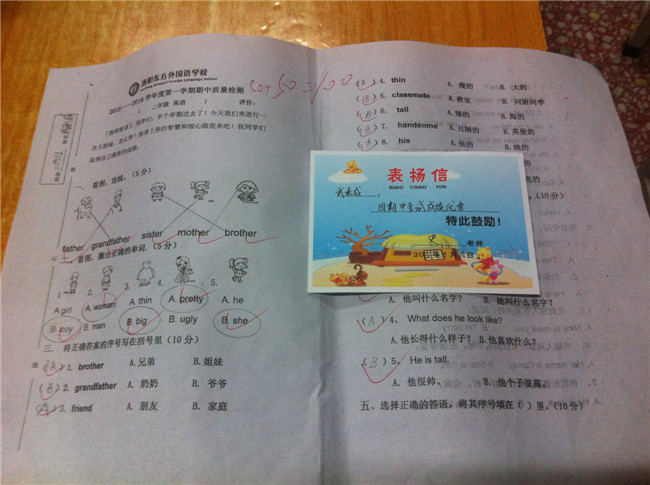 洛阳东方外国语学校
50+50=100
2015—2016学年度第一学期期中质量检测
(二年级 英语) 评价:
一、看图,连线。(5分)
father grandfather sister mother brother
二、看图,圈出正确的单词。(5分)
1. 2. 3. 4. 5.
A. girl A. woman A. thin A. pretty A. he
B. boy B. man B. big B. ugly B. she
三、将正确答案的序号写在括号里(10分)
(A) 1. brother A. 兄弟 B. 姐妹
(B) 2. grandfather A. 奶奶 B. 爷爷
(A) 3. friend A. 朋友 B. 家庭
(A) 4. thin A. 瘦的 B. 大的
(B) 5. classmate A. 教室 B. 同班同学
(B) 6. tall A. 矮的 B. 高的
7. handsome A. 丑陋的 B. 英俊的
8. his A. 他的 B. 她的
(10分)
表扬信
BIAO YANG XIN
因期中考试成绩优秀
特此鼓励!
史 老师
A. 他叫什么名字? B. 她叫什么名字?
(A) 4、What does he look like?
A. 他长得什么样子? B. 他喜欢什么?
(B) 5、He is tall.
A. 他很帅。 B. 他个子很高。
五、选择正确的答语,将其序号填在( )里。(10分)